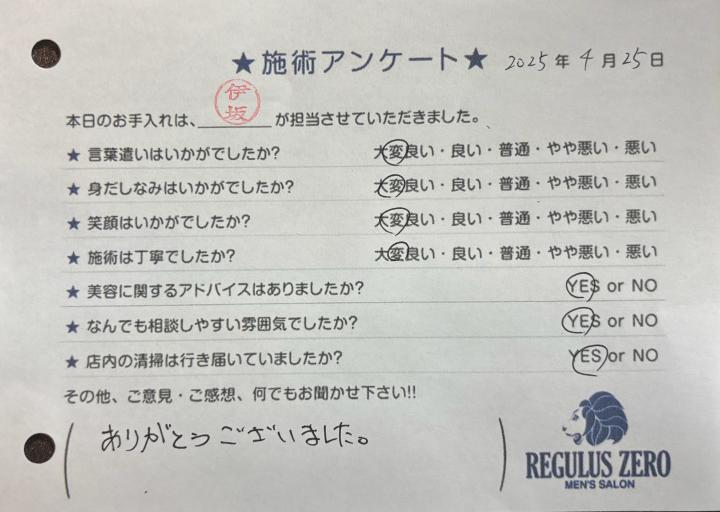 ★施術アンケート★ 2025年4月25日
本日のお手入れは、伊坂が担当させていただきました。
★ 言葉遣いはいかがでしたか? 大変良い・良い・普通・やや悪い・悪い
★ 身だしなみはいかがでしたか? 大変良い・良い・普通・やや悪い・悪い
★ 笑顔はいかがでしたか? 大変良い・良い・普通・やや悪い・悪い
★ 施術は丁寧でしたか? 大変良い・良い・普通・やや悪い・悪い
★ 美容に関するアドバイスはありましたか? YES or NO
★ なんでも相談しやすい雰囲気でしたか? YES or NO
★ 店内の清掃は行き届いていましたか? YES or NO
その他、ご意見・ご感想、何でもお聞かせ下さい!!
ありがとうございました。
REGULUS ZERO
MEN'S SALON